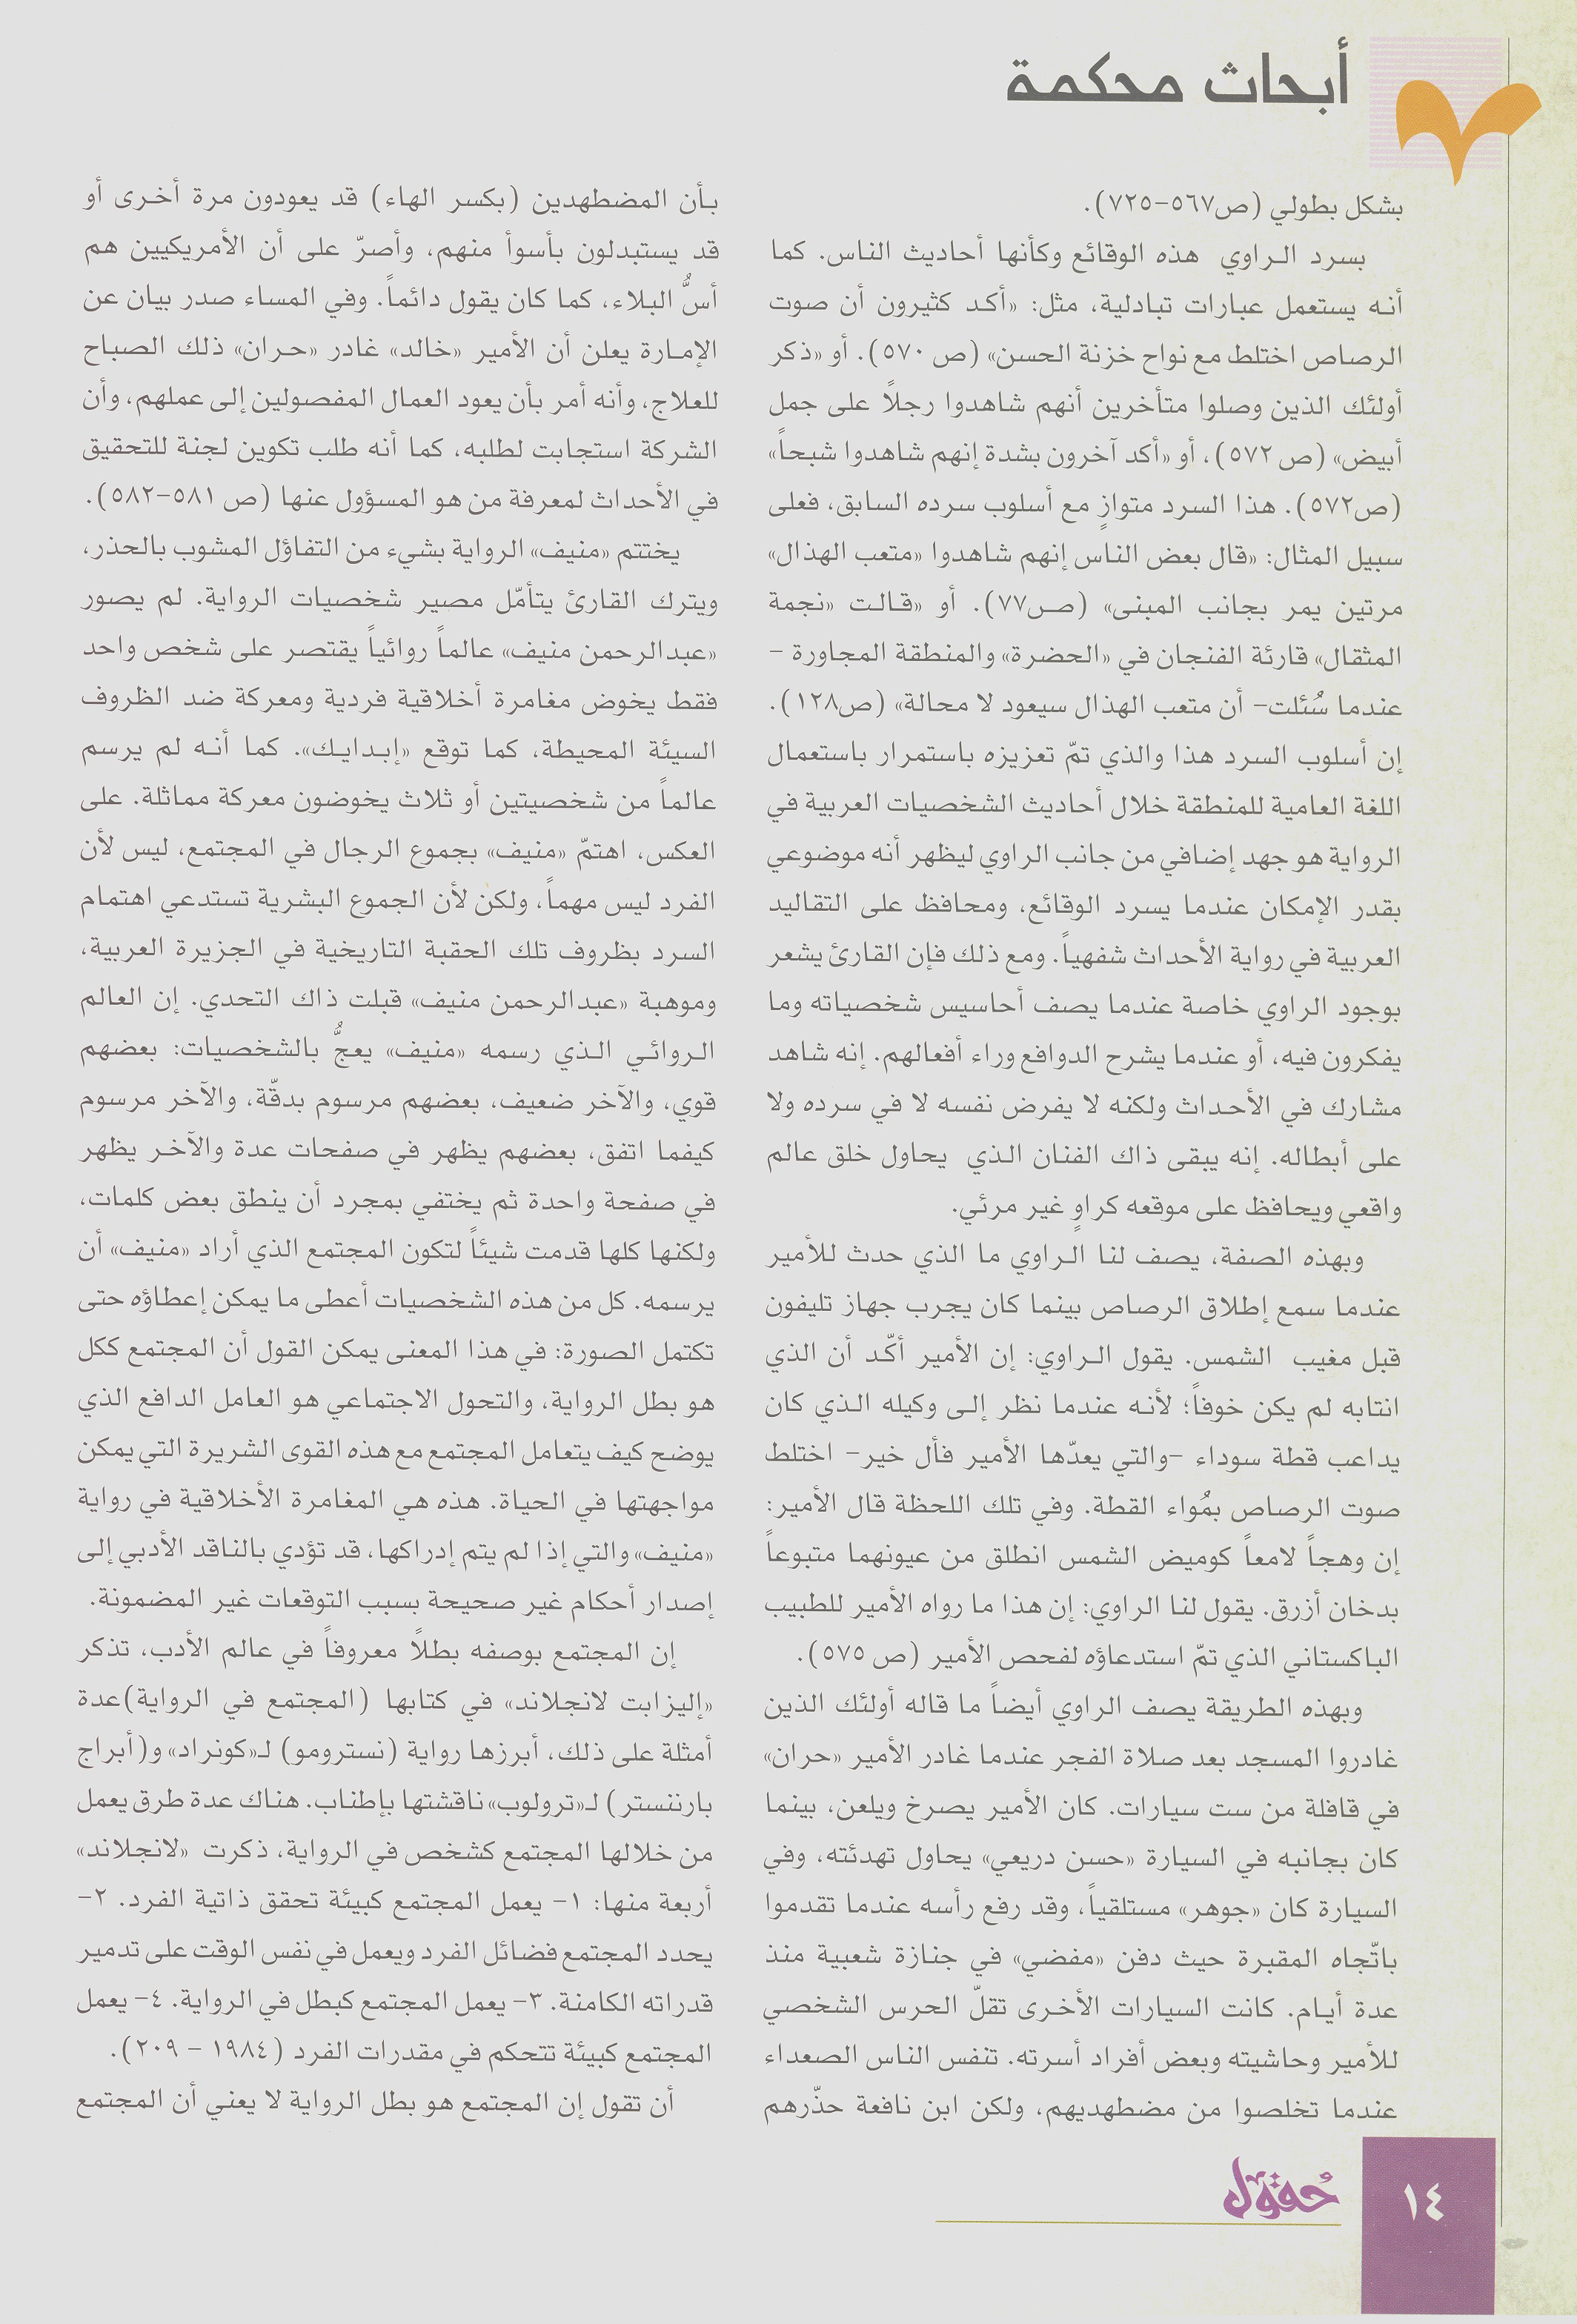 أبحاث محكمة
بشكل بطولي (ص٥٦٧-٧٢٥).
بسرد الراوي هذه الوقائع وكأنها أحاديث الناس. كما
أنه يستعمل عبارات تبادلية، مثل: «أكد كثيرون أن صوت
الرصاص اختلط مع نواح خزنة الحسن» (ص ٥٧٠). أو «ذكر
أولئك الذين وصلوا متأخرين أنهم شاهدوا رجلاً على جمل
أبيض» (ص ٥٧٢)، أو «أكد آخرون بشدة إنهم شاهدوا شبحاً»
(ص٥٧٢). هذا السرد متوازٍ مع أسلوب سرده السابق، فعلى
سبيل المثال: «قال بعض الناس إنهم شاهدوا «متعب الهذال»
مرتين يمر بجانب المبنى» (ص٧٧). أو «قالت «نجمة
المثقال» قارئة الفنجان في «الحضرة» والمنطقة المجاورة -
عندما سُئلت- أن متعب الهذال سيعود لا محالة» (ص١٢٨).
إن أسلوب السرد هذا والذي تمّ تعزيزه باستمرار باستعمال
اللغة العامية للمنطقة خلال أحاديث الشخصيات العربية في
الرواية هو جهد إضافي من جانب الراوي ليظهر أنه موضوعي
بقدر الإمكان عندما يسرد الوقائع، ومحافظ على التقاليد
العربية في رواية الأحداث شفهياً. ومع ذلك فإن القارئ يشعر
بوجود الراوي خاصة عندما يصف أحاسيس شخصياته وما
يفكرون فيه، أو عندما يشرح الدوافع وراء أفعالهم. إنه شاهد
مشارك في الأحداث ولكنه لا يفرض نفسه لا في سرده ولا
على أبطاله. إنه يبقى ذاك الفنان الذي يحاول خلق عالم
واقعي ويحافظ على موقعه كراوٍ غير مرئي.
وبهذه الصفة، يصف لنا الراوي ما الذي حدث للأمير
عندما سمع إطلاق الرصاص بينما كان يجرب جهاز تليفون
قبل مغيب الشمس. يقول الراوي: إن الأمير أكّد أن الذي
انتابه لم يكن خوفاً؛ لأنه عندما نظر إلى وكيله الذي كان
يداعب قطة سوداء -والتي يعدّها الأمير فأل خير- اختلط
صوت الرصاص بمُواء القطة. وفي تلك اللحظة قال الأمير:
إن وهجاً لامعاً كوميض الشمس انطلق من عيونهما متبوعاً
بدخان أزرق. يقول لنا الراوي: إن هذا ما رواه الأمير للطبيب
الباكستاني الذي تمّ استدعاؤه لفحص الأمير (ص ٥٧٥).
وبهذه الطريقة يصف الراوي أيضاً ما قاله أولئك الذين
غادروا المسجد بعد صلاة الفجر عندما غادر الأمير «حران»
في قافلة من ست سيارات. كان الأمير يصرخ ويلعن، بينما
كان بجانبه في السيارة «حسن دريعي» يحاول تهدئته، وفي
السيارة كان «جوهر» مستلقياً، وقد رفع رأسه عندما تقدموا
باتّجاه المقبرة حيث دفن «مفضي» في جنازة شعبية منذ
عدة أيام. كانت السيارات الأخرى تقلّ الحرس الشخصي
للأمير وحاشيته وبعض أفراد أسرته. تنفس الناس الصعداء
عندما تخلصوا من مضطهديهم، ولكن ابن نافعة حذّرهم
بأن المضطهدين (بكسر الهاء) قد يعودون مرة أخرى أو
قد يستبدلون بأسوأ منهم، وأصرّ على أن الأمريكيين هم
أسُّ البلاء، كما كان يقول دائماً. وفي المساء صدر بيان عن
الإمارة يعلن أن الأمير «خالد» غادر «حران» ذلك الصباح
للعلاج، وأنه أمر بأن يعود العمال المفصولين إلى عملهم، وأن
الشركة استجابت لطلبه، كما أنه طلب تكوين لجنة للتحقيق
في الأحداث لمعرفة من هو المسؤول عنها (ص ٥٨١-٥٨٢).
يختتم «منيف» الرواية بشيء من التفاؤل المشوب بالحذر،
ويترك القارئ يتأمّل مصير شخصيات الرواية. لم يصور
«عبدالرحمن منيف» عالماً روائياً يقتصر على شخص واحد
فقط يخوض مغامرة أخلاقية فردية ومعركة ضد الظروف
السيئة المحيطة، كما توقع «إبدايك». كما أنه لم يرسم
عالماً من شخصيتين أو ثلاث يخوضون معركة مماثلة. على
العكس، اهتمّ «منيف» بجموع الرجال في المجتمع، ليس لأن
الفرد ليس مهماً، ولكن لأن الجموع البشرية تستدعي اهتمام
السرد بظروف تلك الحقبة التاريخية في الجزيرة العربية،
وموهبة «عبدالرحمن منيف» قبلت ذاك التحدي. إن العالم
الروائي الذي رسمه «منيف» يعجُّ بالشخصيات: بعضهم
قوي، والآخر ضعيف، بعضهم مرسوم بدقّة، والآخر مرسوم
كيفما اتفق، بعضهم يظهر في صفحات عدة والآخر يظهر
في صفحة واحدة ثم يختفي بمجرد أن ينطق بعض كلمات،
ولكنها كلها قدمت شيئاً لتكون المجتمع الذي أراد «منيف» أن
يرسمه. كل من هذه الشخصيات أعطى ما يمكن إعطاؤه حتى
تكتمل الصورة: في هذا المعنى يمكن القول أن المجتمع ككل
هو بطل الرواية، والتحول الاجتماعي هو العامل الدافع الذي
يوضح كيف يتعامل المجتمع مع هذه القوى الشريرة التي يمكن
مواجهتها في الحياة. هذه هي المغامرة الأخلاقية في رواية
«منيف» والتي إذا لم يتم إدراكها، قد تؤدي بالناقد الأدبي إلى
إصدار أحكام غير صحيحة بسبب التوقعات غير المضمونة.
إن المجتمع بوصفه بطلاً معروفاً في عالم الأدب، تذكر
«إليزابت لانجلاند» في كتابها (المجتمع في الرواية)عدة
أمثلة على ذلك، أبرزها رواية (نسترومو) لـ«كونراد» و(أبراج
بارننستر) لـ«ترولوب» ناقشتها بإطناب. هناك عدة طرق يعمل
من خلالها المجتمع كشخص في الرواية، ذكرت «لانجلاند»
أربعة منها: ١- يعمل المجتمع كبيئة تحقق ذاتية الفرد. ٢-
يحدد المجتمع فضائل الفرد ويعمل في نفس الوقت على تدمير
قدراته الكامنة. ٣- يعمل المجتمع كبطل في الرواية. ٤- يعمل
المجتمع كبيئة تتحكم في مقدرات الفرد (١٩٨٤ - ٢٠٩).
أن تقول إن المجتمع هو بطل الرواية لا يعني أن المجتمع
حُقول
١٤